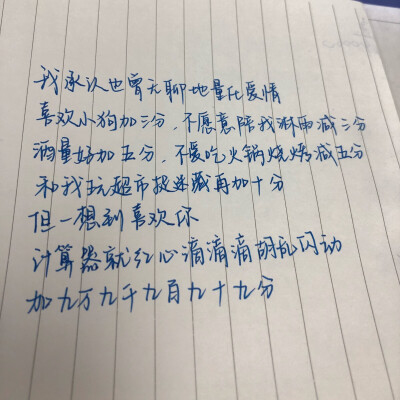 我承认也曾无聊地量化爱情
喜欢小狗加三分,不愿意陪我淋雨减三分
酒量好加五分,不爱吃火锅烧烤减五分
和我玩超市捉迷藏再加十分
但一想到喜欢你
计算器就红心滴滴滴胡乱闪动
加九万九千九百九十九分